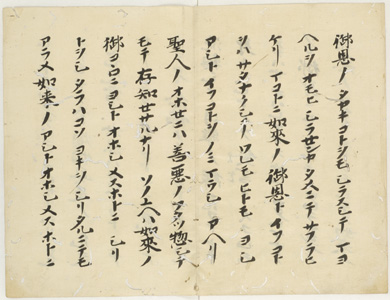 御恩ノタカキコトヲモシラスシテマヨ
ヘルヲオモヒシラセンカタメニテサフラヒ
ケリマコトニ如來ノ御恩トイフコト
ヲハサタナクシテワレモヒトモヨシ
アシトイフコトヲノミマウシアヘリ
聖人ノオホセニハ善惡ノフタツ惣シテ
モテ存知セサルナリソノユヘハ如來ノ
御コヽロニヨシトオホシメスホトニシリ
トヲシタラハコソヨキヲシリタルニテモ
アラメ如來ノアシトオホシメスホトニ